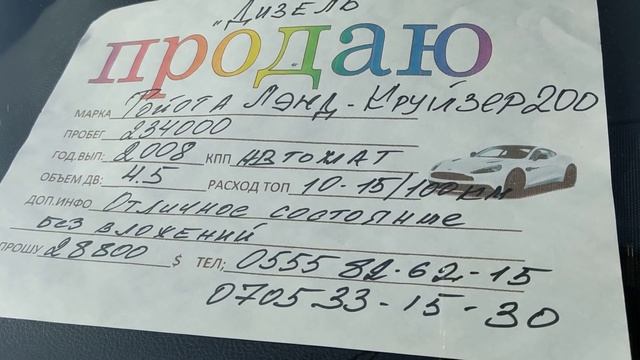 „Дизель
продаю
МАРКА Тойота Лэнд-Крузер 200
ПРОБЕГ 234000
ГОД.ВЫП: 2008 КПП АВТОМАТ
ОБЪЕМ ДВ: 4.5 РАСХОД ТОП 10-15/100км
ДОП.ИНФО Отличное состояние
без вложений
ПРОШУ 28800 $ ТЕЛ; 0555 82-62-15
0705 33-15-30